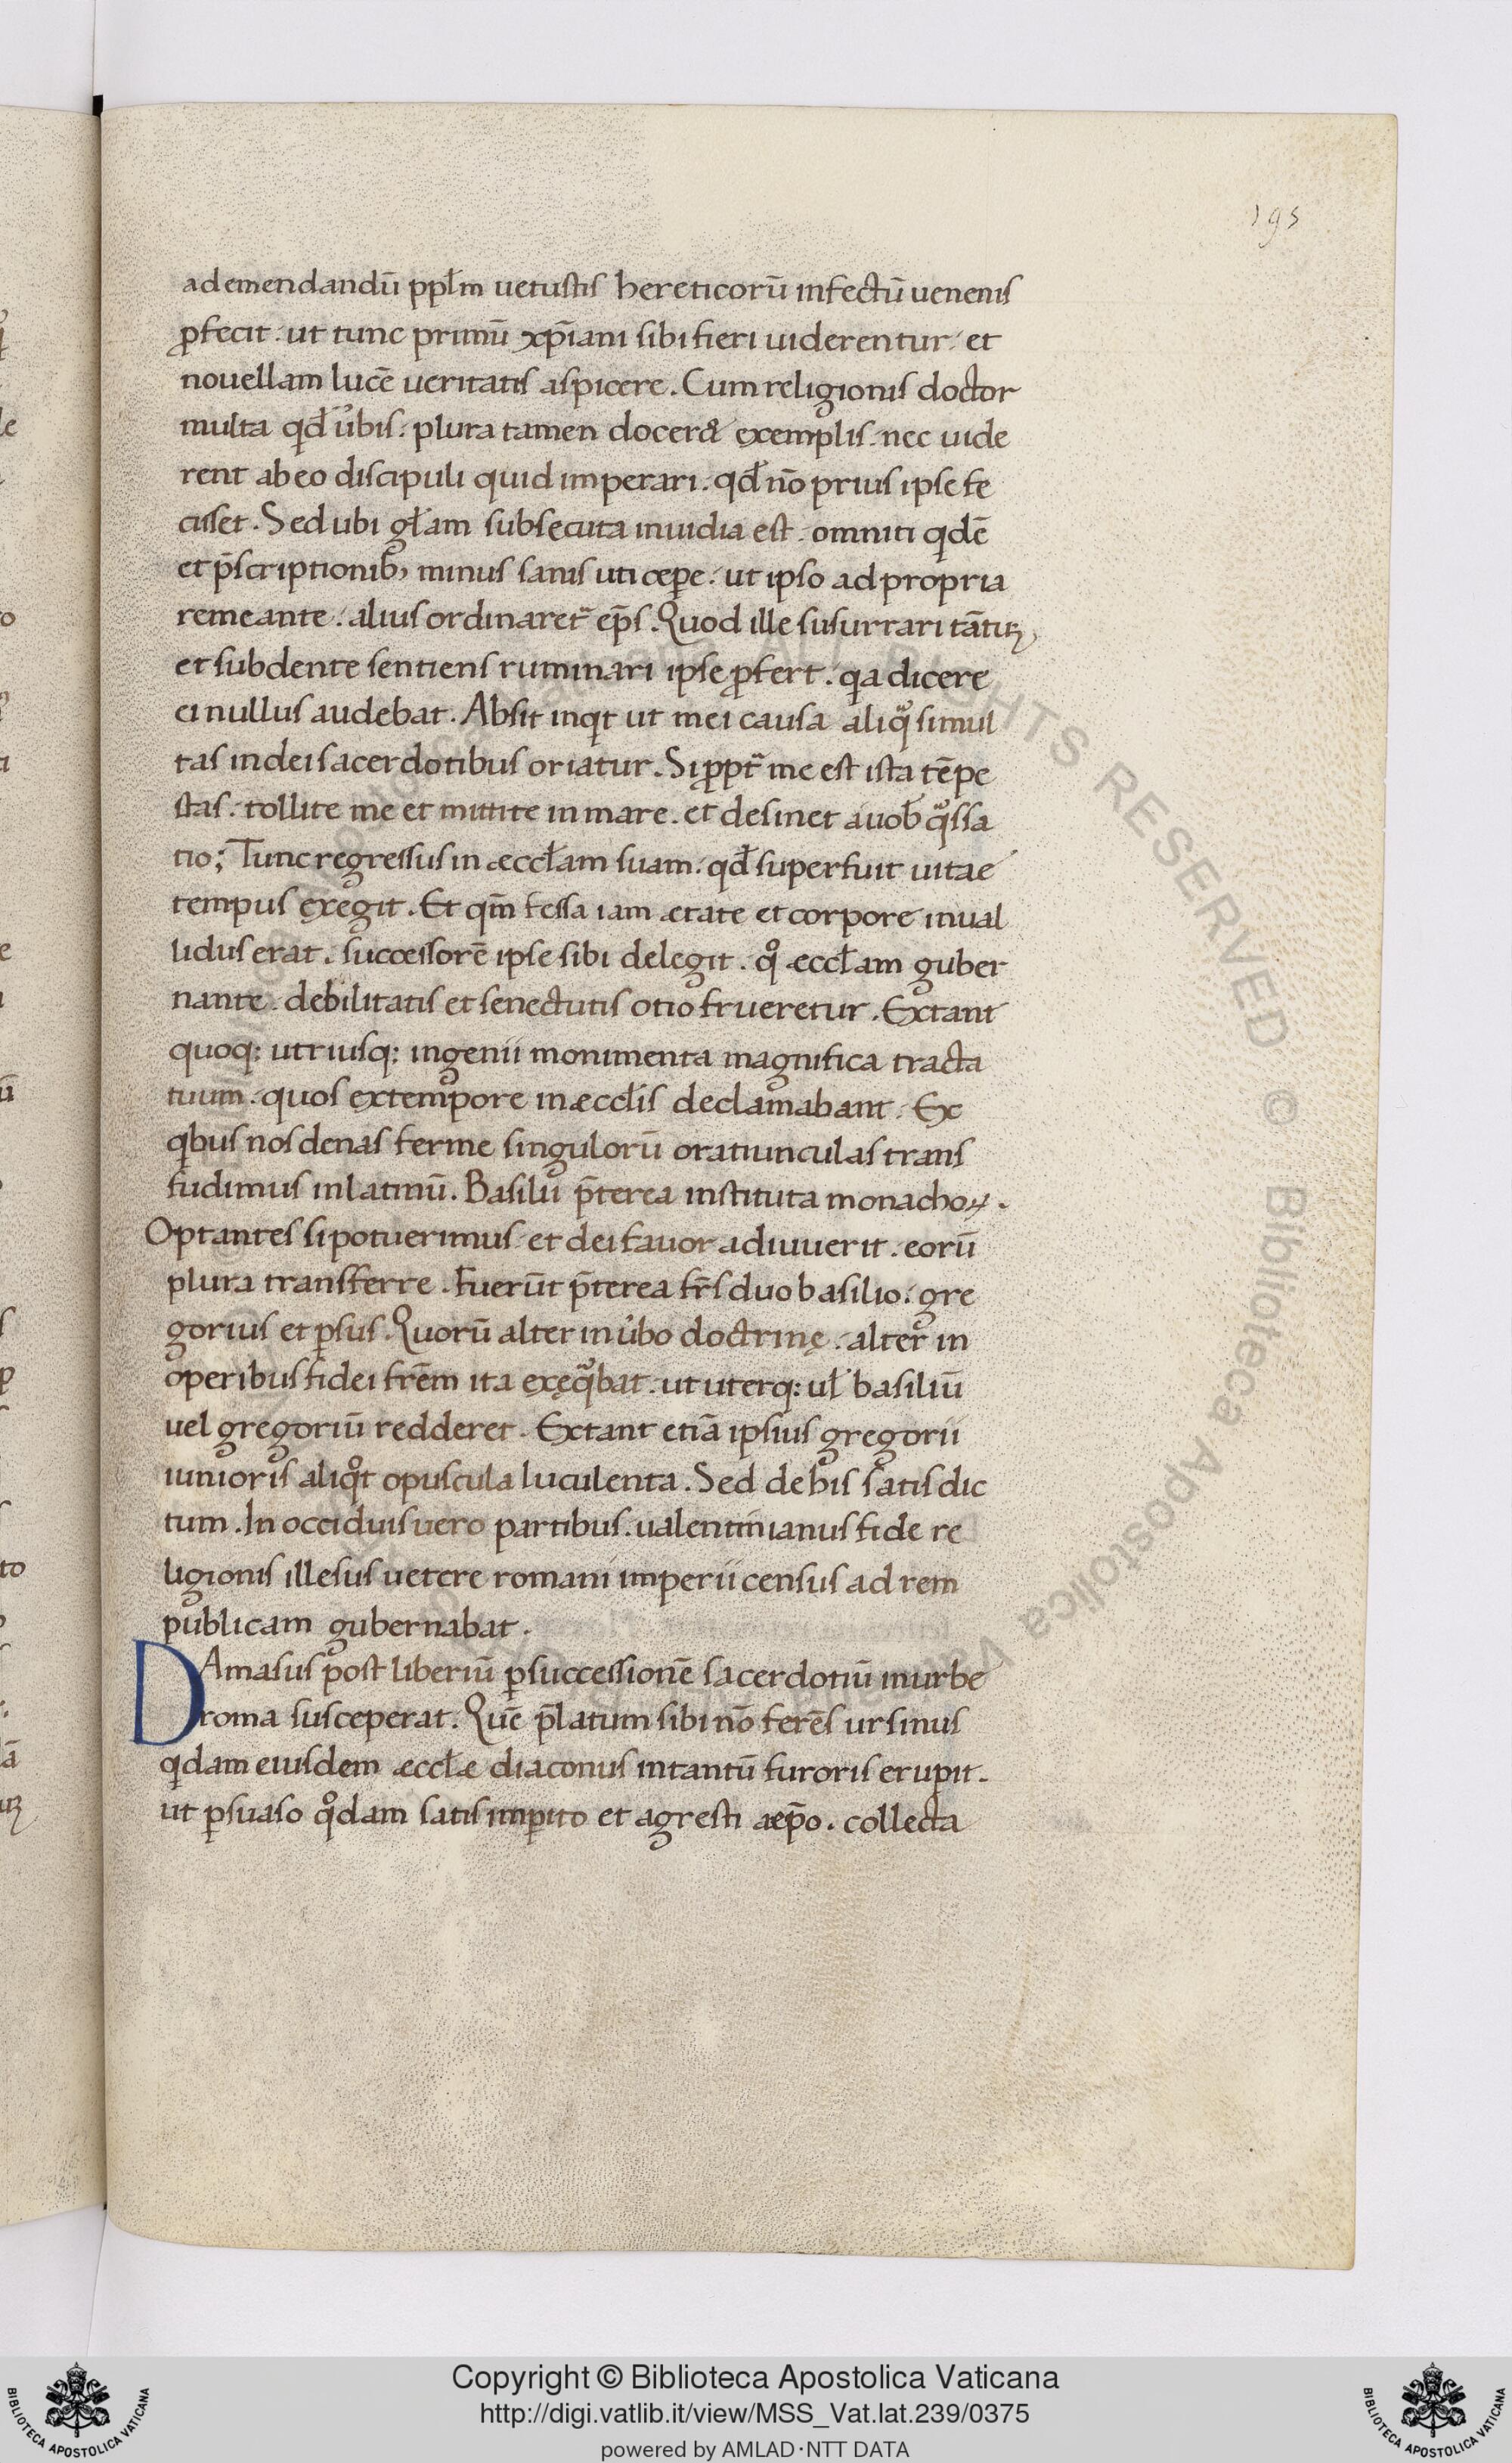 195
ad emendandū ppłm uetustis hereticorū infectū uenenis
ꝓfecit. ut tunc primū xp̄iani sibi fieri uiderentur. et
nouellam lucē ueritatis aspicere. Cum religionis doctor
multa qd̄ u̓bis. plura tamen docer& exemplis. nec uide
rent ab eo discipuli quid imperari. qd̄ nō prius ipse fe
cisset. Sed ubi głam subsecuta inuidia est. omniti qdē
et p̄scriptionib; minus sanis uti cępe. ut ipso ad propria
remeante. alius ordinaret᷑ ep̄s. Quod ille susurrari tātū
et sub dente sentiens ruminari ipse ꝓfert. qa dicere
ei nullus audebat. Absit inqt ut mei causa aliqͣ simul
tas in dei sacerdotibus oriatur. Si ꝓpt᷑ me est ista tēpe
stas. tollite me et mittite in mare. et desinet a uob̄ qͣssa
tio; Tunc regressus in æccłam suam. qd̄ superfuit uitae
tempus exegit. Et qm̄ fessa iam ætate et corpore inual
lidus erat. successorē ipse sibi delegit. qͦ æccłam guber
nante. debilitatis et senectutis otio frueretur. Extant
quoq: utriusq: ingenii monimenta magnifica tracta
tuum. quos extempore in æccłis declamabant. Ex
qbus nos denas ferme singulorū oratiunculas trans
fudimus in latinū. Basilii p̄terea instituta monachoꝝ.
Optantes si potuerimus et dei fauor adiuuerit. eorū
plura transferre. Fuerūt p̄terea fr̄s duo basilio. gre
gorius et ꝑsus. Quorū alter in u̓bo doctrinę. alter in
operibus fidei fr̄em ita exęqͣbat. ut uterq: uł basiliū
uel gregoriū redderet. Extant etiā ipsius gregorii
iunioris aliqͦt opuscula luculenta. Sed de his satis dic
tum. In occiduis uero partibus. ualentinianus fide re
ligionis illesus uetere romani imperii census ad rem
publicam gubernabat.
DAmasus post liberiū ꝑ successionē sacerdotiū in urbe
roma susceperat. Quē p̄latum sibi nō ferēs ursinus
qdam eiusdem æccłæ diaconus in tantū furoris erupit.
ut ꝑsuaso qͦdam satis imꝑito et agresti æp̄o. collecta
ALL RIGHTS RESERVED © Biblioteca Apostolica Vaticana
Copyright © Biblioteca Apostolica Vaticana
http://digi.vatlib.it/view/MSS_Vat.lat.239/0375
powered by AMLAD·NTT DATA
BIBLIOTECA APOSTOLICA VATICANA
BIBLIOTECA APOSTOLICA VATICANA